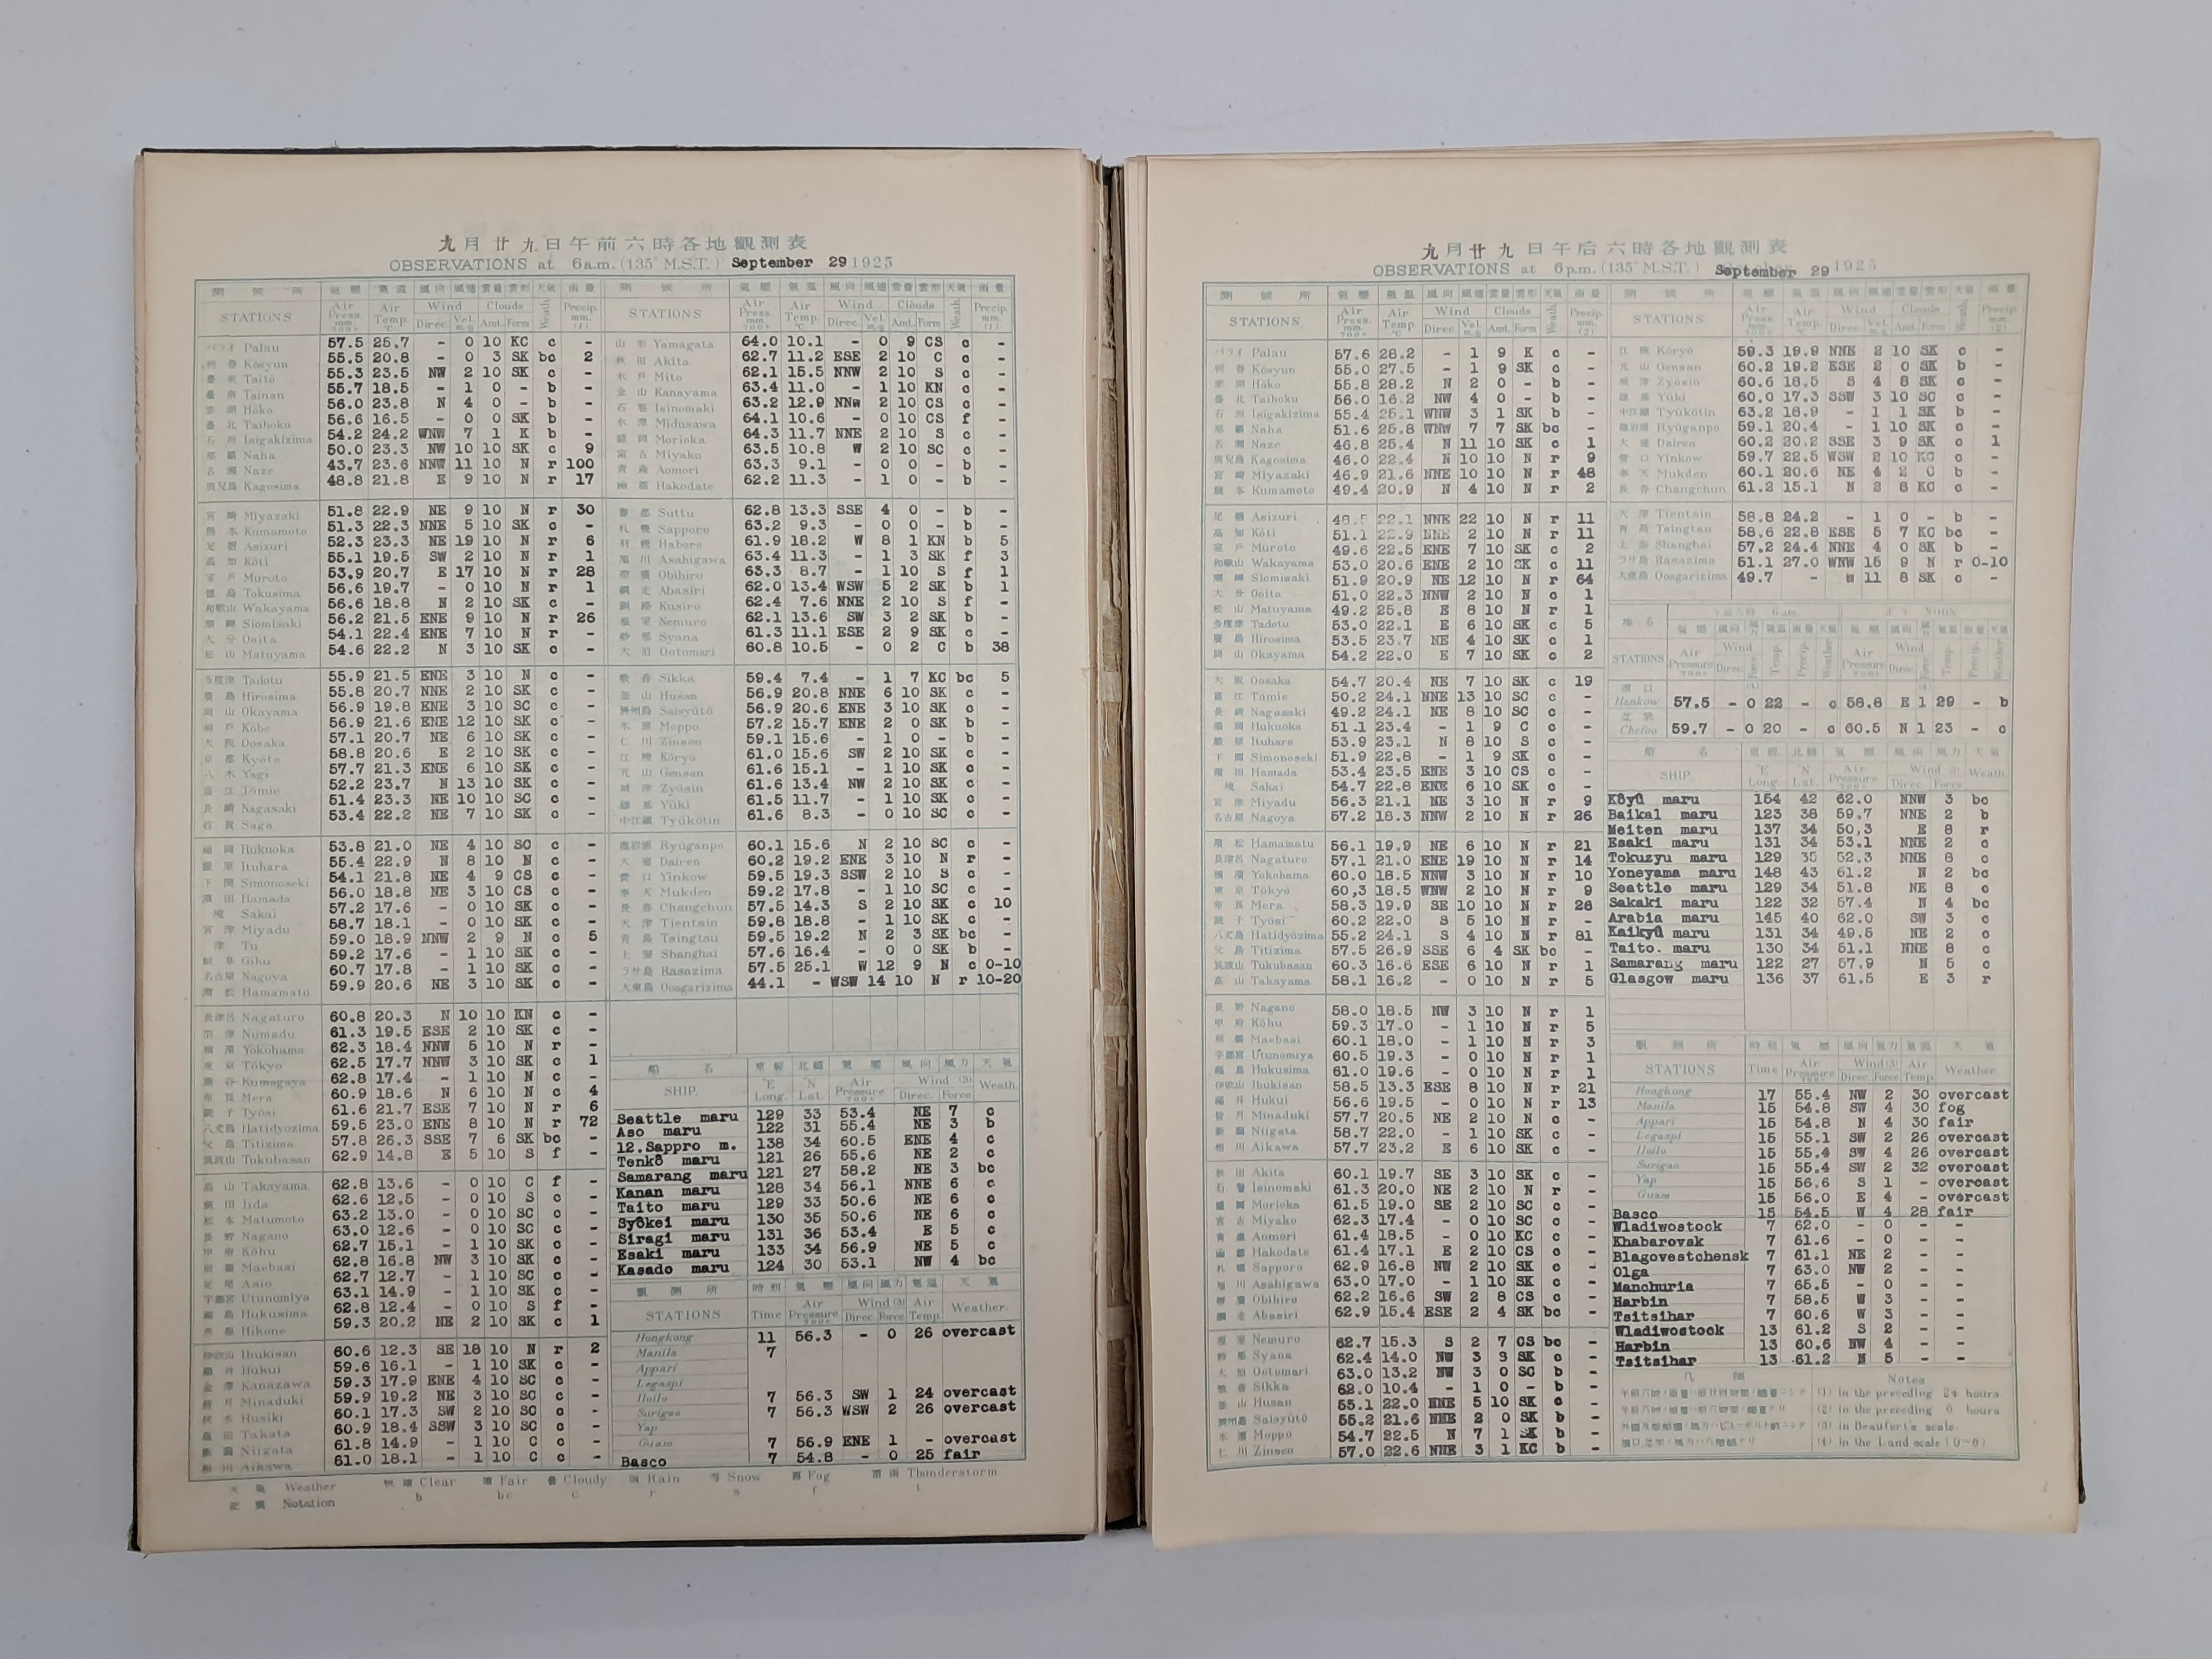 九月廿九日午前六時各地觀測表
OBSERVATIONS at 6a.m. (135° M.S.T.) September 29 1925
測候所 氣壓 氣溫 風向 風速 雲量 雲形 天氣 雨量
STATIONS Air Press. mm. 700+ Air Temp. °C Wind Direc. Vel. m/s Clouds Amt. Form Weath. Precip. mm. (1)
パラオ Palau 57.5 25.7 - 0 10 KC c -
恒春 Kôsyun 55.5 20.8 - 0 3 SK bc 2
臺東 Taitô 55.3 23.5 NW 2 10 SK c -
臺南 Tainan 55.7 18.5 - 1 0 - b -
澎湖 Hôko 56.0 23.8 N 4 0 - b -
臺北 Taihoku 56.6 16.5 - 0 0 SK b -
石垣 Isigakizima 54.2 24.2 WNW 7 1 K b -
那覇 Naha 50.0 23.3 NW 10 10 SK c 9
名瀬 Naze 43.7 23.6 NNW 11 10 N r 100
鹿兒島 Kagosima 48.8 21.8 E 9 10 N r 17
宮崎 Miyazaki 51.8 22.9 NE 9 10 N r 30
熊本 Kumamoto 51.3 22.3 NNE 5 10 SK c -
足摺 Asizuri 52.3 23.3 NE 19 10 N r 6
高知 Kôti 55.1 19.5 SW 2 10 N r 1
室戸 Muroto 53.9 20.7 E 17 10 N r 28
徳島 Tokusima 56.6 19.7 - 0 10 N r 1
和歌山 Wakayama 56.6 18.8 N 2 10 SK c -
潮岬 Siomisaki 56.2 21.5 ENE 9 10 N r 26
大分 Ooita 54.1 22.4 ENE 7 10 N r -
松山 Matuyama 54.6 22.2 N 3 10 SK c -
多度津 Tadotu 55.9 21.5 ENE 3 10 N c -
廣島 Hirosima 55.8 20.7 NNE 2 10 SK c -
岡山 Okayama 56.9 19.8 ENE 3 10 SC c -
神戸 Kôbe 56.9 21.6 ENE 12 10 SK c -
大阪 Oosaka 57.1 20.7 NE 6 10 SK c -
京都 Kyôto 58.8 20.6 E 2 10 SK c -
八木 Yagi 57.7 21.3 ENE 6 10 SK c -
富江 Tomie 52.2 23.7 N 13 10 SK c -
長崎 Nagasaki 51.4 23.3 NE 10 10 SC c -
佐賀 Saga 53.4 22.2 NE 7 10 SK c -
福岡 Hukuoka 53.8 21.0 NE 4 10 SC c -
嚴原 Ituhara 55.4 22.9 N 8 10 N c -
下關 Simonoseki 54.1 21.8 NE 4 9 CS c -
濱田 Hamada 56.0 18.8 NE 3 10 CS c -
境 Sakai 57.2 17.6 - 0 10 SK c -
宮津 Miyadu 58.7 18.1 - 0 10 SK c -
津 Tu 59.0 18.9 NNW 2 9 N c 5
岐阜 Gihu 59.2 17.6 - 1 10 SK c -
名古屋 Nagoya 60.7 17.8 - 1 10 SK c -
濱松 Hamamatu 59.9 20.6 NE 3 10 SK c -
長津呂 Nagaturo 60.8 20.3 N 10 10 KN c -
沼津 Numadu 61.3 19.5 ESE 2 10 SK c -
横濱 Yokohama 62.3 18.4 NNW 5 10 N r -
東京 Tôkyo 62.5 17.7 NNW 3 10 SK c 1
熊谷 Kumagaya 62.8 17.4 - 1 10 N c -
布良 Mera 60.9 18.6 N 6 10 N c 4
銚子 Tyôsi 61.6 21.7 ESE 7 10 N r 6
八丈島 Hatidyozima 59.5 23.0 ENE 8 10 N r 72
父島 Titizima 57.8 26.3 SSE 7 6 SK bc -
筑波山 Tukubasan 62.9 14.8 E 5 10 S f -
高山 Takayama 62.8 13.6 - 0 10 C f -
飯田 Iida 62.6 12.5 - 0 10 S c -
松本 Matumoto 63.2 13.0 - 0 10 SC c -
長野 Nagano 63.0 12.6 - 0 10 SC c -
甲府 Kôhu 62.7 15.1 - 1 10 SK c -
前橋 Maebasi 62.8 16.8 NW 3 10 SK c -
足尾 Asio 62.7 12.7 - 1 10 SC c -
宇都宮 Utunomiya 63.1 14.9 - 1 10 SK c -
福島 Hukusima 62.8 12.4 - 0 10 S f -
彦根 Hikone 59.3 20.2 NE 2 10 SK c 1
伊吹山 Ibukisan 60.6 12.3 SE 18 10 N r 2
福井 Hukui 59.6 16.1 - 1 10 SK c -
金澤 Kanazawa 59.3 17.9 ENE 4 10 SC c -
Minaduki 59.9 19.2 NE 3 10 SC c -
伏木 Husiki 60.1 17.3 SW 2 10 SC c -
高田 Takata 60.9 18.4 SSW 3 10 SC c -
新潟 Niigata 61.8 14.9 - 1 10 C c -
相川 Aikawa 61.0 18.1 - 1 10 C c -
測候所 氣壓 氣溫 風向 風速 雲量 雲形 天氣 雨量
STATIONS Air Press. mm. 700+ Air Temp. °C Wind Direc. Vel. m/s Clouds Amt. Form Weath. Precip. mm. (1)
山形 Yamagata 64.0 10.1 - 0 9 CS c -
秋田 Akita 62.7 11.2 ESE 2 10 C c -
水戸 Mito 62.1 15.5 NNW 2 10 S c -
金山 Kanayama 63.4 11.0 - 1 10 KN c -
石巻 Isinomaki 63.2 12.9 NNw 2 10 CS c -
水澤 Midusawa 64.1 10.6 - 0 10 CS f -
盛岡 Morioka 64.3 11.7 NNE 2 10 S c -
宮古 Miyako 63.5 10.8 W 2 10 SC c -
青森 Aomori 63.3 9.1 - 0 0 - b -
函館 Hakodate 62.2 11.3 - 1 0 - b -
壽都 Suttu 62.8 13.3 SSE 4 0 - b -
札幌 Sapporo 63.2 9.3 - 0 0 - b -
羽幌 Haboro 61.9 18.2 W 8 1 KN b 5
旭川 Asahigawa 63.4 11.3 - 1 3 SK f 3
帶廣 Obihiro 63.3 8.7 - 1 10 S f 1
網走 Abasiri 62.0 13.4 WSW 5 2 SK b 1
釧路 Kusiro 62.4 7.6 NNE 2 10 S f -
根室 Nemuro 62.1 13.6 SW 3 2 SK b -
紗那 Syana 61.3 11.1 ESE 2 9 SK c -
大泊 Ootomari 60.8 10.5 - 0 2 C b 38
敷香 Sikka 59.4 7.4 - 1 7 KC bc 5
釜山 Husan 56.9 20.8 NNE 6 10 SK c -
濟州島 Saisyûtô 56.9 20.6 ENE 3 10 SK c -
木浦 Moppo 57.2 15.7 ENE 2 0 SK b -
仁川 Zinsen 59.1 15.6 - 1 0 - b -
江陵 Kôryô 61.0 15.6 SW 2 10 SK c -
元山 Gensan 61.6 15.1 - 1 10 SK c -
城津 Zyôsin 61.6 13.4 NW 2 10 SK c -
雄基 Yûki 61.5 11.7 - 1 10 SK c -
中江鎮 Tyûkôtin 61.6 8.3 - 0 10 SC c -
龍岩浦 Ryûganpo 60.1 15.6 N 2 10 SC c -
大連 Dairen 60.2 19.2 ENE 3 10 N r -
營口 Yinkow 59.5 19.3 SSW 2 10 S c -
奉天 Mukden 59.2 17.8 - 1 10 SC c -
長春 Changchun 57.5 14.3 S 2 10 SK c 10
天津 Tientsin 59.8 18.8 - 1 10 SK c -
青島 Tsingtau 59.5 19.2 N 2 3 SK bc -
上海 Shanghai 57.6 16.4 - 0 0 SK b -
ラサ島 Rasazima 57.5 25.1 W 12 9 N c 0-10
大東島 Ooagarizima 44.1 - WSW 14 10 N r 10-20
船名 東經 北緯 氣壓 風向 風力 天氣
SHIP. °E Long. °N Lat. Air Pressure 700+ Wind (3) Direc. Force Weath.
Seattle maru 129 33 53.4 NE 7 c
Aso maru 122 31 55.4 NE 3 b
12.Sappro m. 138 34 60.5 ENE 4 c
Tenkô maru 121 26 55.6 NE 2 c
Samarang maru 121 27 58.2 NE 3 bc
Kanan maru 128 34 56.1 NNE 6 c
Taito maru 129 33 50.6 NE 6 c
Syôkei maru 130 35 50.6 NE 6 c
Siragi maru 131 36 53.4 E 5 c
Esaki maru 133 34 56.9 NE 5 c
Kasado maru 124 30 53.1 NW 4 bc
觀測所 時刻 氣壓 風向 風力 氣溫 天氣
STATIONS Time Air Pressure 700+ Wind (3) Direc. Force Air Temp. Weather.
Hongkong 11 56.3 - 0 26 overcast
Manila 7
Appari
Legaspi
Iloilo 7 56.3 SW 1 24 overcast
Surigao 7 56.3 WSW 2 26 overcast
Yap
Guam 7 56.9 ENE 1 - overcast
Basco 7 54.8 - 0 25 fair
天氣 Weather 快晴 Clear 晴 Fair 曇 Cloudy 雨 Rain 雪 Snow 霧 Fog 雷雨 Thunderstorm
記號 Notation b bc c r s f t
九月廿九日午后六時各地觀測表
OBSERVATIONS at 6p.m. (135° M.S.T.) September 29 1925
測候所 氣壓 氣溫 風向 風速 雲量 雲形 天氣 雨量
STATIONS Air Press. mm. 700+ Air Temp. °C Wind Direc. Vel. m/s Clouds Amt. Form Weath. Precip. mm. (2)
パラオ Palau 57.6 28.2 - 1 9 K c -
恒春 Kôsyun 55.0 27.5 - 1 9 SK c -
澎湖 Hôko 55.8 28.2 N 2 0 - b -
臺北 Taihoku 56.0 16.2 NW 4 0 - b -
石垣 Isigakizima 55.4 25.1 WNW 3 1 SK b -
那覇 Naha 51.6 25.8 WNW 7 7 SK bc -
名瀬 Naze 46.8 25.4 N 11 10 SK c 1
鹿兒島 Kagosima 46.0 22.4 N 10 10 N r 9
宮崎 Miyazaki 46.9 21.6 NNE 10 10 N r 48
熊本 Kumamoto 49.4 20.9 N 4 10 N r 2
足摺 Asizuri 48.5 22.1 NNE 22 10 N r 11
高知 Kôti 51.1 22.9 NNE 2 10 N r 11
室戸 Muroto 49.6 22.5 ENE 7 10 SK c 2
和歌山 Wakayama 53.0 20.6 ENE 2 10 SK c 11
潮岬 Siomisaki 51.9 20.9 NE 12 10 N r 64
大分 Ooita 51.0 22.3 NNW 2 10 N c 1
松山 Matuyama 49.2 25.8 E 8 10 N r 1
多度津 Tadotu 53.0 22.1 E 6 10 SK c 5
廣島 Hirosima 53.5 23.7 NE 4 10 SK c 1
岡山 Okayama 54.2 22.0 E 7 10 SK c 2
大阪 Oosaka 54.7 20.4 NE 7 10 SK c 19
富江 Tomie 50.2 24.1 NNE 13 10 SC c -
長崎 Nagasaki 49.2 24.1 NE 8 10 SC c -
福岡 Hukuoka 51.1 23.4 - 1 9 C c -
嚴原 Ituhara 53.9 23.1 N 8 10 S c -
下關 Simonoseki 51.9 22.8 - 1 9 SK c -
濱田 Hamada 53.4 23.5 ENE 3 10 CS c -
境 Sakai 54.7 22.8 ENE 6 10 SK c -
宮津 Miyadu 56.3 21.1 NE 3 10 N r 9
名古屋 Nagoya 57.2 18.3 NNW 2 10 N r 26
濱松 Hamamatu 56.1 19.9 NE 6 10 N r 21
長津呂 Nagaturo 57.1 21.0 ENE 19 10 N r 14
横濱 Yokohama 60.0 18.5 NNW 3 10 N r 10
東京 Tôkyô 60,3 18.5 WNW 2 10 N r 9
布良 Mera 58.3 19.9 SE 10 10 N r 28
銚子 Tyôsi 60.2 22.0 S 5 10 N r -
八丈島 Hatidyôzima 55.2 24.1 S 4 10 N r 81
父島 Titizima 57.5 26.9 SSE 6 4 SK bc -
筑波山 Tukubasan 60.3 16.6 ESE 6 10 N r 1
高山 Takayama 58.1 16.2 - 0 10 N r 5
長野 Nagano 58.0 18.5 NW 3 10 N r 1
甲府 Kôhu 59.3 17.0 - 1 10 N r 5
前橋 Maebasi 60.1 18.0 - 1 10 N r 3
宇都宮 Utunomiya 60.5 19.3 - 0 10 N r 1
福島 Hukusima 61.0 19.6 - 0 10 N r 1
伊吹山 Ibukisan 58.5 13.3 ESE 8 10 N r 21
福井 Hukui 56.6 19.5 - 0 10 N r 13
Minaduki 57.7 20.5 NE 2 10 N c -
新潟 Niigata 58.7 22.0 - 1 10 SK c -
相川 Aikawa 57.7 23.2 E 6 10 SK c -
秋田 Akita 60.1 19.7 SE 3 10 SK c -
石巻 Isinomaki 61.3 20.0 NE 2 10 N r -
盛岡 Morioka 61.5 19.0 SE 2 10 SC c -
宮古 Miyako 62.3 17.4 - 0 10 SC c -
青森 Aomori 61.4 18.5 - 0 10 KC c -
函館 Hakodate 61.4 17.1 E 2 10 CS c -
札幌 Sapporo 62.9 16.8 NW 2 10 SK c -
旭川 Asahigawa 63.0 17.0 - 1 10 SK c -
帶廣 Obihiro 62.2 16.6 SW 2 8 CS c -
網走 Abasiri 62.9 15.4 ESE 2 4 SK bc -
根室 Nemuro 62.7 15.3 S 2 7 CS bc -
紗那 Syana 62.4 14.0 NW 3 9 SK c -
大泊 Ootomari 63.0 13.2 NW 3 0 SC b -
敷香 Sikka 62.0 10.4 - 1 0 - b -
釜山 Husan 55.1 22.0 NNE 5 10 SK c -
濟州島 Saisyûtô 55.2 21.6 NNE 2 0 SK b -
木浦 Moppo 54.7 22.5 N 7 1 SK b -
仁川 Zinsen 57.0 22.6 NNE 3 1 KC b -
測候所 氣壓 氣溫 風向 風速 雲量 雲形 天氣 雨量
STATIONS Air Press. mm. 700+ Air Temp. °C Wind Direc. Vel. m/s Clouds Amt. Form Weath. Precip. mm. (2)
江陵 Kôryô 59.3 19.9 NNE 2 10 SK c -
元山 Gensan 60.2 19.2 ESE 2 0 SK b -
城津 Zyôsin 60.6 18.5 S 4 8 SK c -
雄基 Yûki 60.0 17.3 SSW 3 10 SC c -
中江鎮 Tyûkôtin 63.2 18.9 - 1 1 SK b -
龍岩浦 Ryûganpo 59.1 20.4 - 1 10 SK c -
大連 Dairen 60.2 20.2 SSE 3 9 SK c 1
營口 Yinkow 59.7 22.5 WSW 2 10 KC c -
奉天 Mukden 60.1 20.6 NE 4 2 C b -
長春 Changchun 61.2 15.1 N 2 8 KC c -
天津 Tientsin 58.8 24.2 - 1 0 - b -
青島 Tsingtan 58.6 22.8 ESE 5 7 KC bc -
上海 Shanghai 57.2 24.4 NNE 4 0 SK b -
ラサ島 Rasazima 51.1 27.0 WNW 15 9 N r 0-10
大東島 Ooagarizima 49.7 - W 11 8 SK c -
午前六時 6am. 正午 Noon
地名 氣壓 風向 風力 氣溫 雨量 天氣 氣壓 風向 風力 氣溫 雨量 天氣
STATIONS Air Pressure 700+ Wind Direc. Force Temp. Precip. Weather Air Pressure 700+ Wind Direc. Force Temp. Precip. Weather
漢口 (4) (4)
Hankow 57.5 - 0 22 - c 58.8 E 1 29 - b
芝罘
Chefoo 59.7 - 0 20 - c 60.5 N 1 23 - c
船名 東經 北緯 氣壓 風向 風力 天氣
SHIP. °E Long. °N Lat Air Pressure 700+ Wind (3) Direc. Force Weath
Kôyû maru 154 42 62.0 NNW 3 bc
Baikal maru 123 38 59,7 NNE 2 b
Meiten maru 137 34 50,3 E 8 r
Esaki maru 131 34 53.1 NNE 2 c
Tokuzyu maru 129 35 52.3 NNE 8 c
Yoneyama maru 148 43 61.2 N 2 bc
Seattle maru 129 34 51.8 NE 8 c
Sakaki maru 122 32 57.4 N 4 bc
Arabia maru 145 40 62.0 SW 3 c
Kaikyû maru 131 34 49.5 NE 2 c
Taito. maru 130 34 51.1 NNE 8 c
Samarang maru 122 27 57.9 N 5 c
Glasgow maru 136 37 61.5 E 3 r
觀測所 時刻 氣壓 風向 風力 氣溫 天氣
STATIONS Time Air Pressure 700+ Wind(3) Direc. Force Air Temp. Weather.
Hongkong 17 55.4 NW 2 30 overcast
Manila 15 54.8 SW 4 30 fog
Appari 15 54.8 N 4 30 fair
Legaspi 15 55.1 SW 2 26 overcast
Iloilo 15 55.4 SW 4 26 overcast
Surigao 15 55.4 SW 2 32 overcast
Yap 15 56.6 S 1 - overcast
Guam 15 56.0 E 4 - overcast
Basco 15 54.5 W 4 28 fair
Wladiwostock 7 62.0 - 0 - -
Khabarovsk 7 61.6 - 0 - -
Blagovestchensk 7 61.1 NE 2 - -
Olga 7 63.0 NW 2 - -
Manchuria 7 65.5 - 0 - -
Harbin 7 58.5 W 3 - -
Tsitsihar 7 60.6 W 3 - -
Wladiwostock 13 61.2 S 2 - -
Harbin 13 60.6 NW 4 - -
Tsitsihar 13 61.2 N 5 - -
凡例 Notes
(1) In the preceding 24 hours
(2) In the preceding 6 hours
(3) In Beaufort's scale.
(4) In the Land scale (0-6)